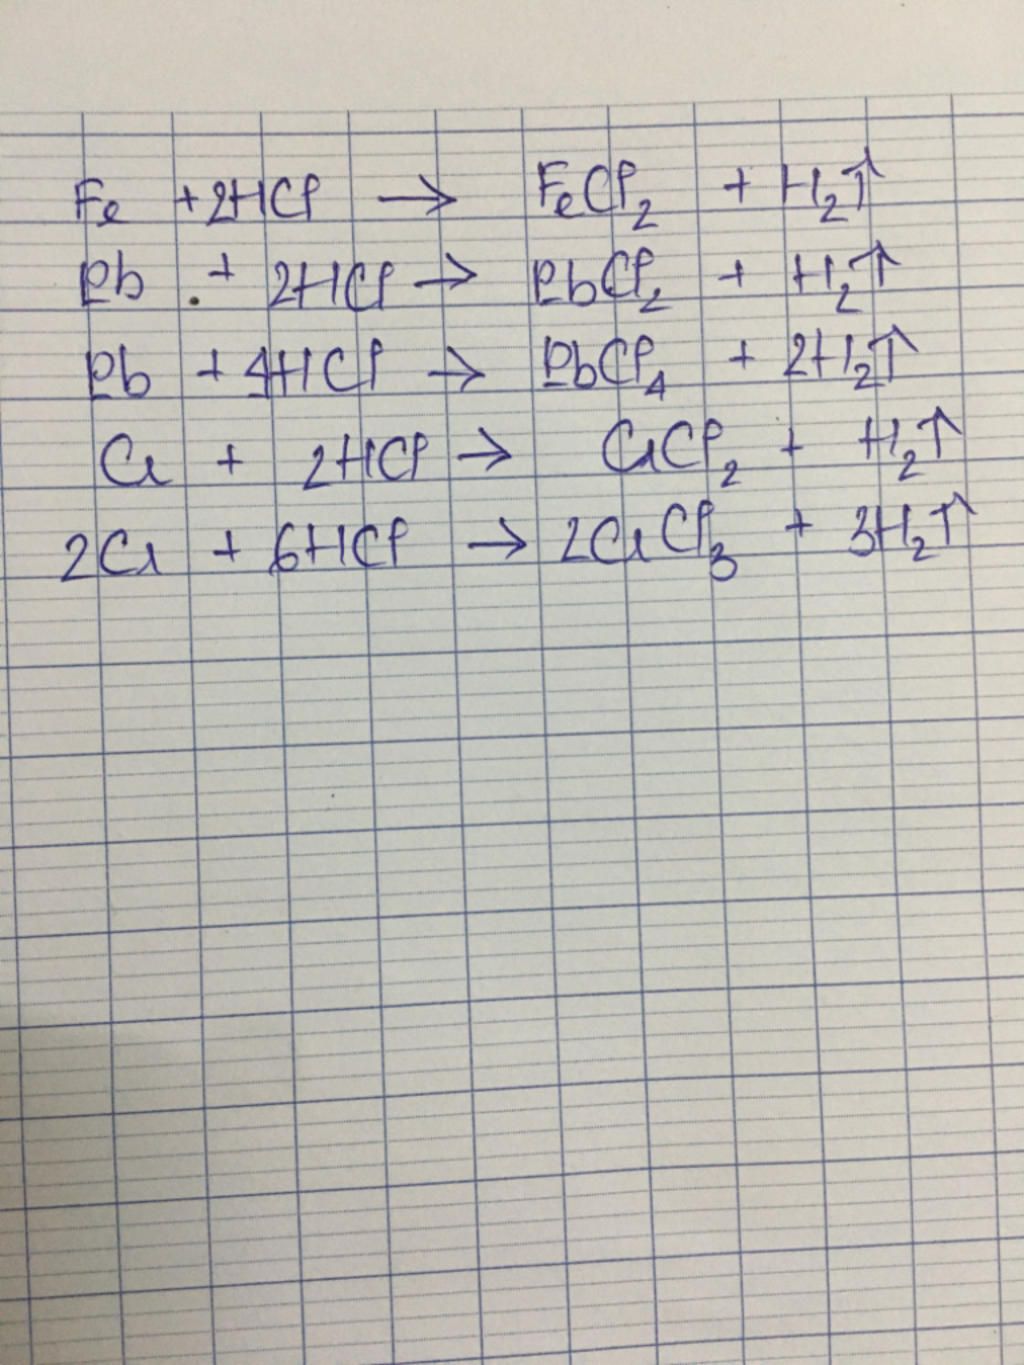 Fe + 2HCl → FeCl₂ + H₂↑
Pb + 2HCl → PbCl₂ + H₂↑
Pb + 4HCl → PbCl₄ + 2H₂↑
Cr + 2HCl → CrCl₂ + H₂↑
2Cr + 6HCl → 2CrCl₃ + 3H₂↑